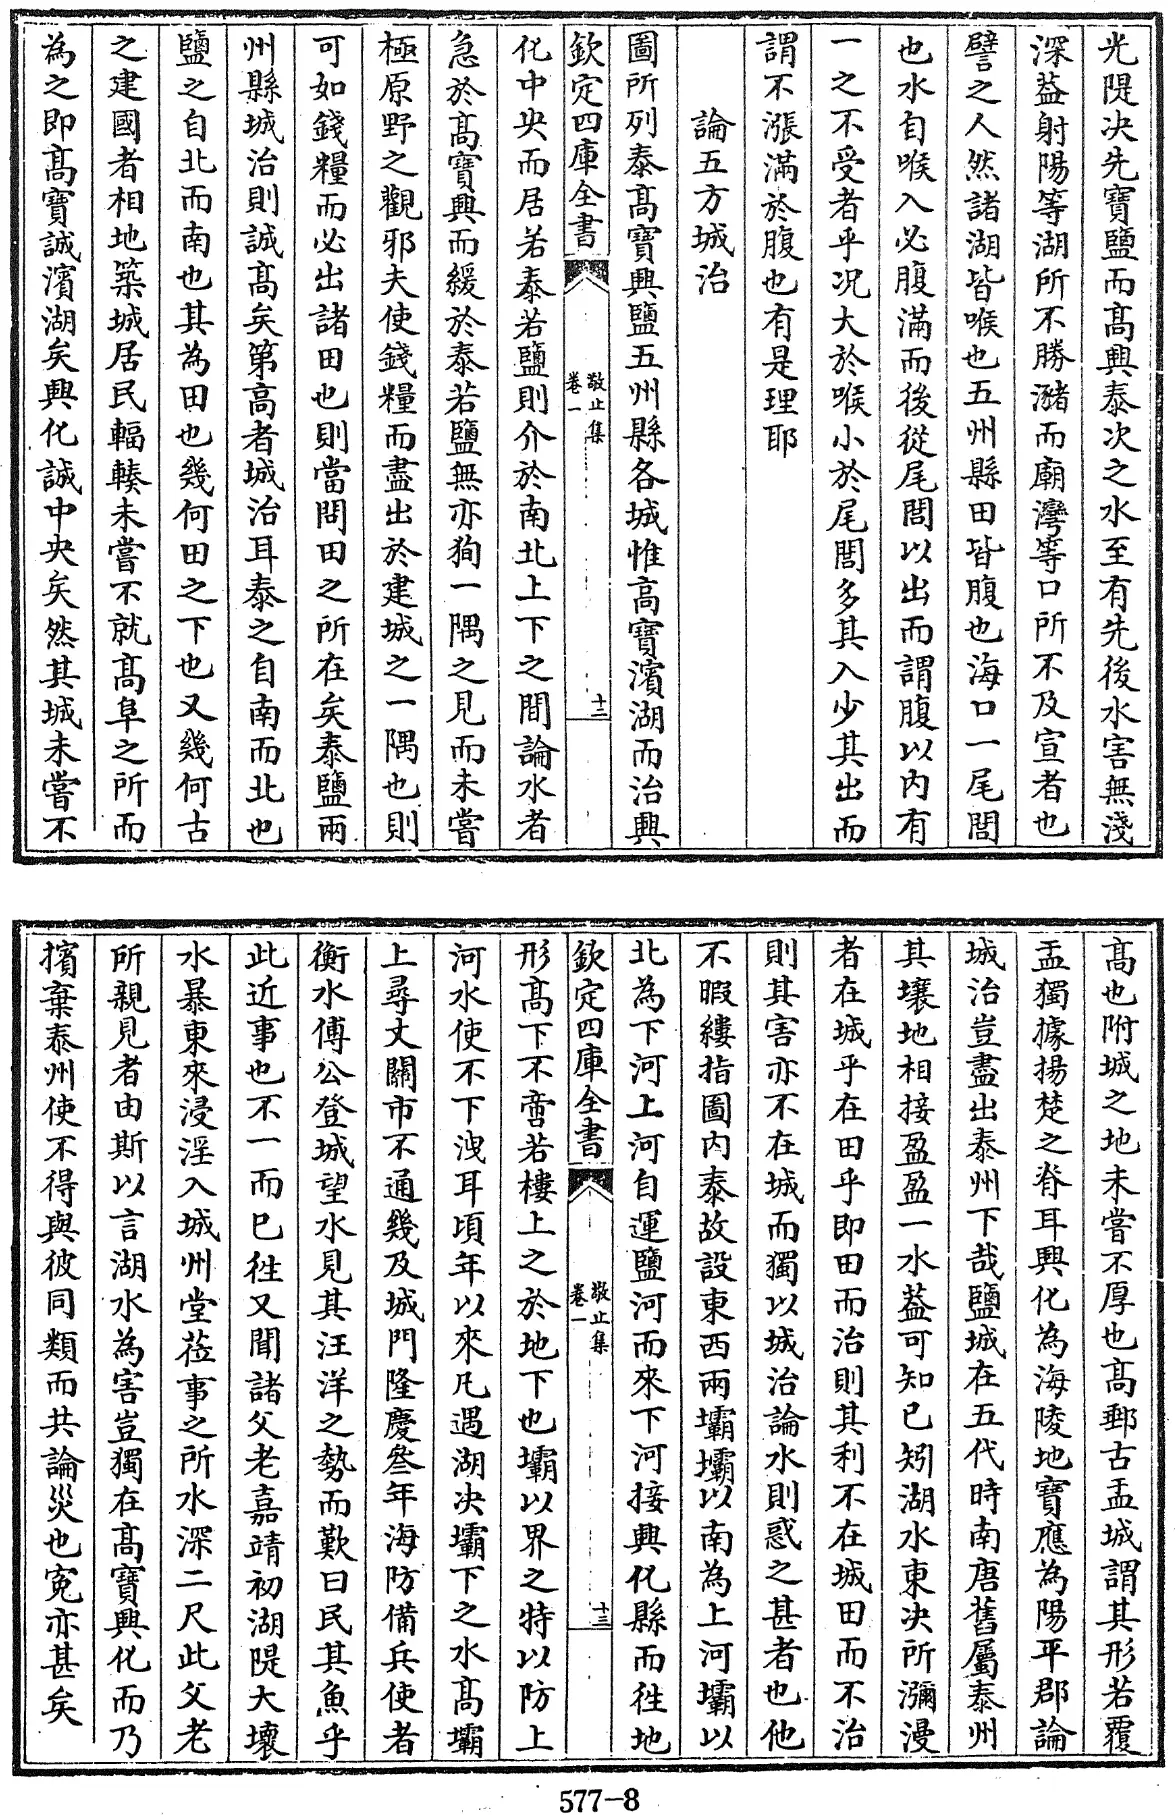 光隄决先寶鹽而髙興泰次之水至有先後水害無淺
深葢射陽等湖所不勝瀦而廟灣等口所不及宣者也
譬之人然諸湖皆喉也五州縣田皆腹也海口一尾閭
也水自喉入必腹滿而後從尾閭以出而謂腹以内有
一之不受者乎况大於喉小於尾閭多其入少其出而
謂不漲滿於腹也有是理耶
論五方城治
圖所列泰髙寶興鹽五州縣各城惟高寶濱湖而治興
欽定四庫全書
敬止集
卷一
十二
化中央而居若泰若鹽則介於南北上下之間論水者
急於髙寶興而緩於泰若鹽無亦狥一隅之見而未嘗
極原野之觀邪夫使錢糧而盡出於建城之一隅也則
可如錢糧而必出諸田也則當問田之所在矣泰鹽兩
州縣城治則誠髙矣第高者城治耳泰之自南而北也
鹽之自北而南也其為田也幾何田之下也又幾何古
之建國者相地築城居民輻輳未嘗不就髙阜之所而
為之即髙寶誠濱湖矣興化誠中央矣然其城未嘗不
髙也附城之地未嘗不厚也髙郵古盂城謂其形若覆
盂獨據揚楚之脊耳興化為海陵地寶應為陽平郡論
城治豈盡出泰州下哉鹽城在五代時南唐舊屬泰州
其壤地相接盈盈一水葢可知已矧湖水東决所瀰漫
者在城乎在田乎即田而治則其利不在城田而不治
則其害亦不在城而獨以城治論水則惑之甚者也他
不暇縷指圖内泰故設東西兩壩壩以南為上河壩以
北為下河上河自運鹽河而來下河接興化縣而徃地
欽定四庫全書
敬止集
卷一
十三
形髙下不啻若樓上之於地下也壩以界之特以防上
河水使不下洩耳頃年以來凡遇湖决壩下之水髙壩
上尋丈關市不通幾及城門隆慶叁年海防備兵使者
衡水傅公登城望水見其汪洋之勢而歎曰民其魚乎
此近事也不一而已徃又聞諸父老嘉靖初湖隄大壞
水暴東來浸淫入城州堂莅事之所水深二尺此父老
所親見者由斯以言湖水為害豈獨在髙寶興化而乃
擯棄泰州使不得與彼同類而共論災也寃亦甚矣
577-8